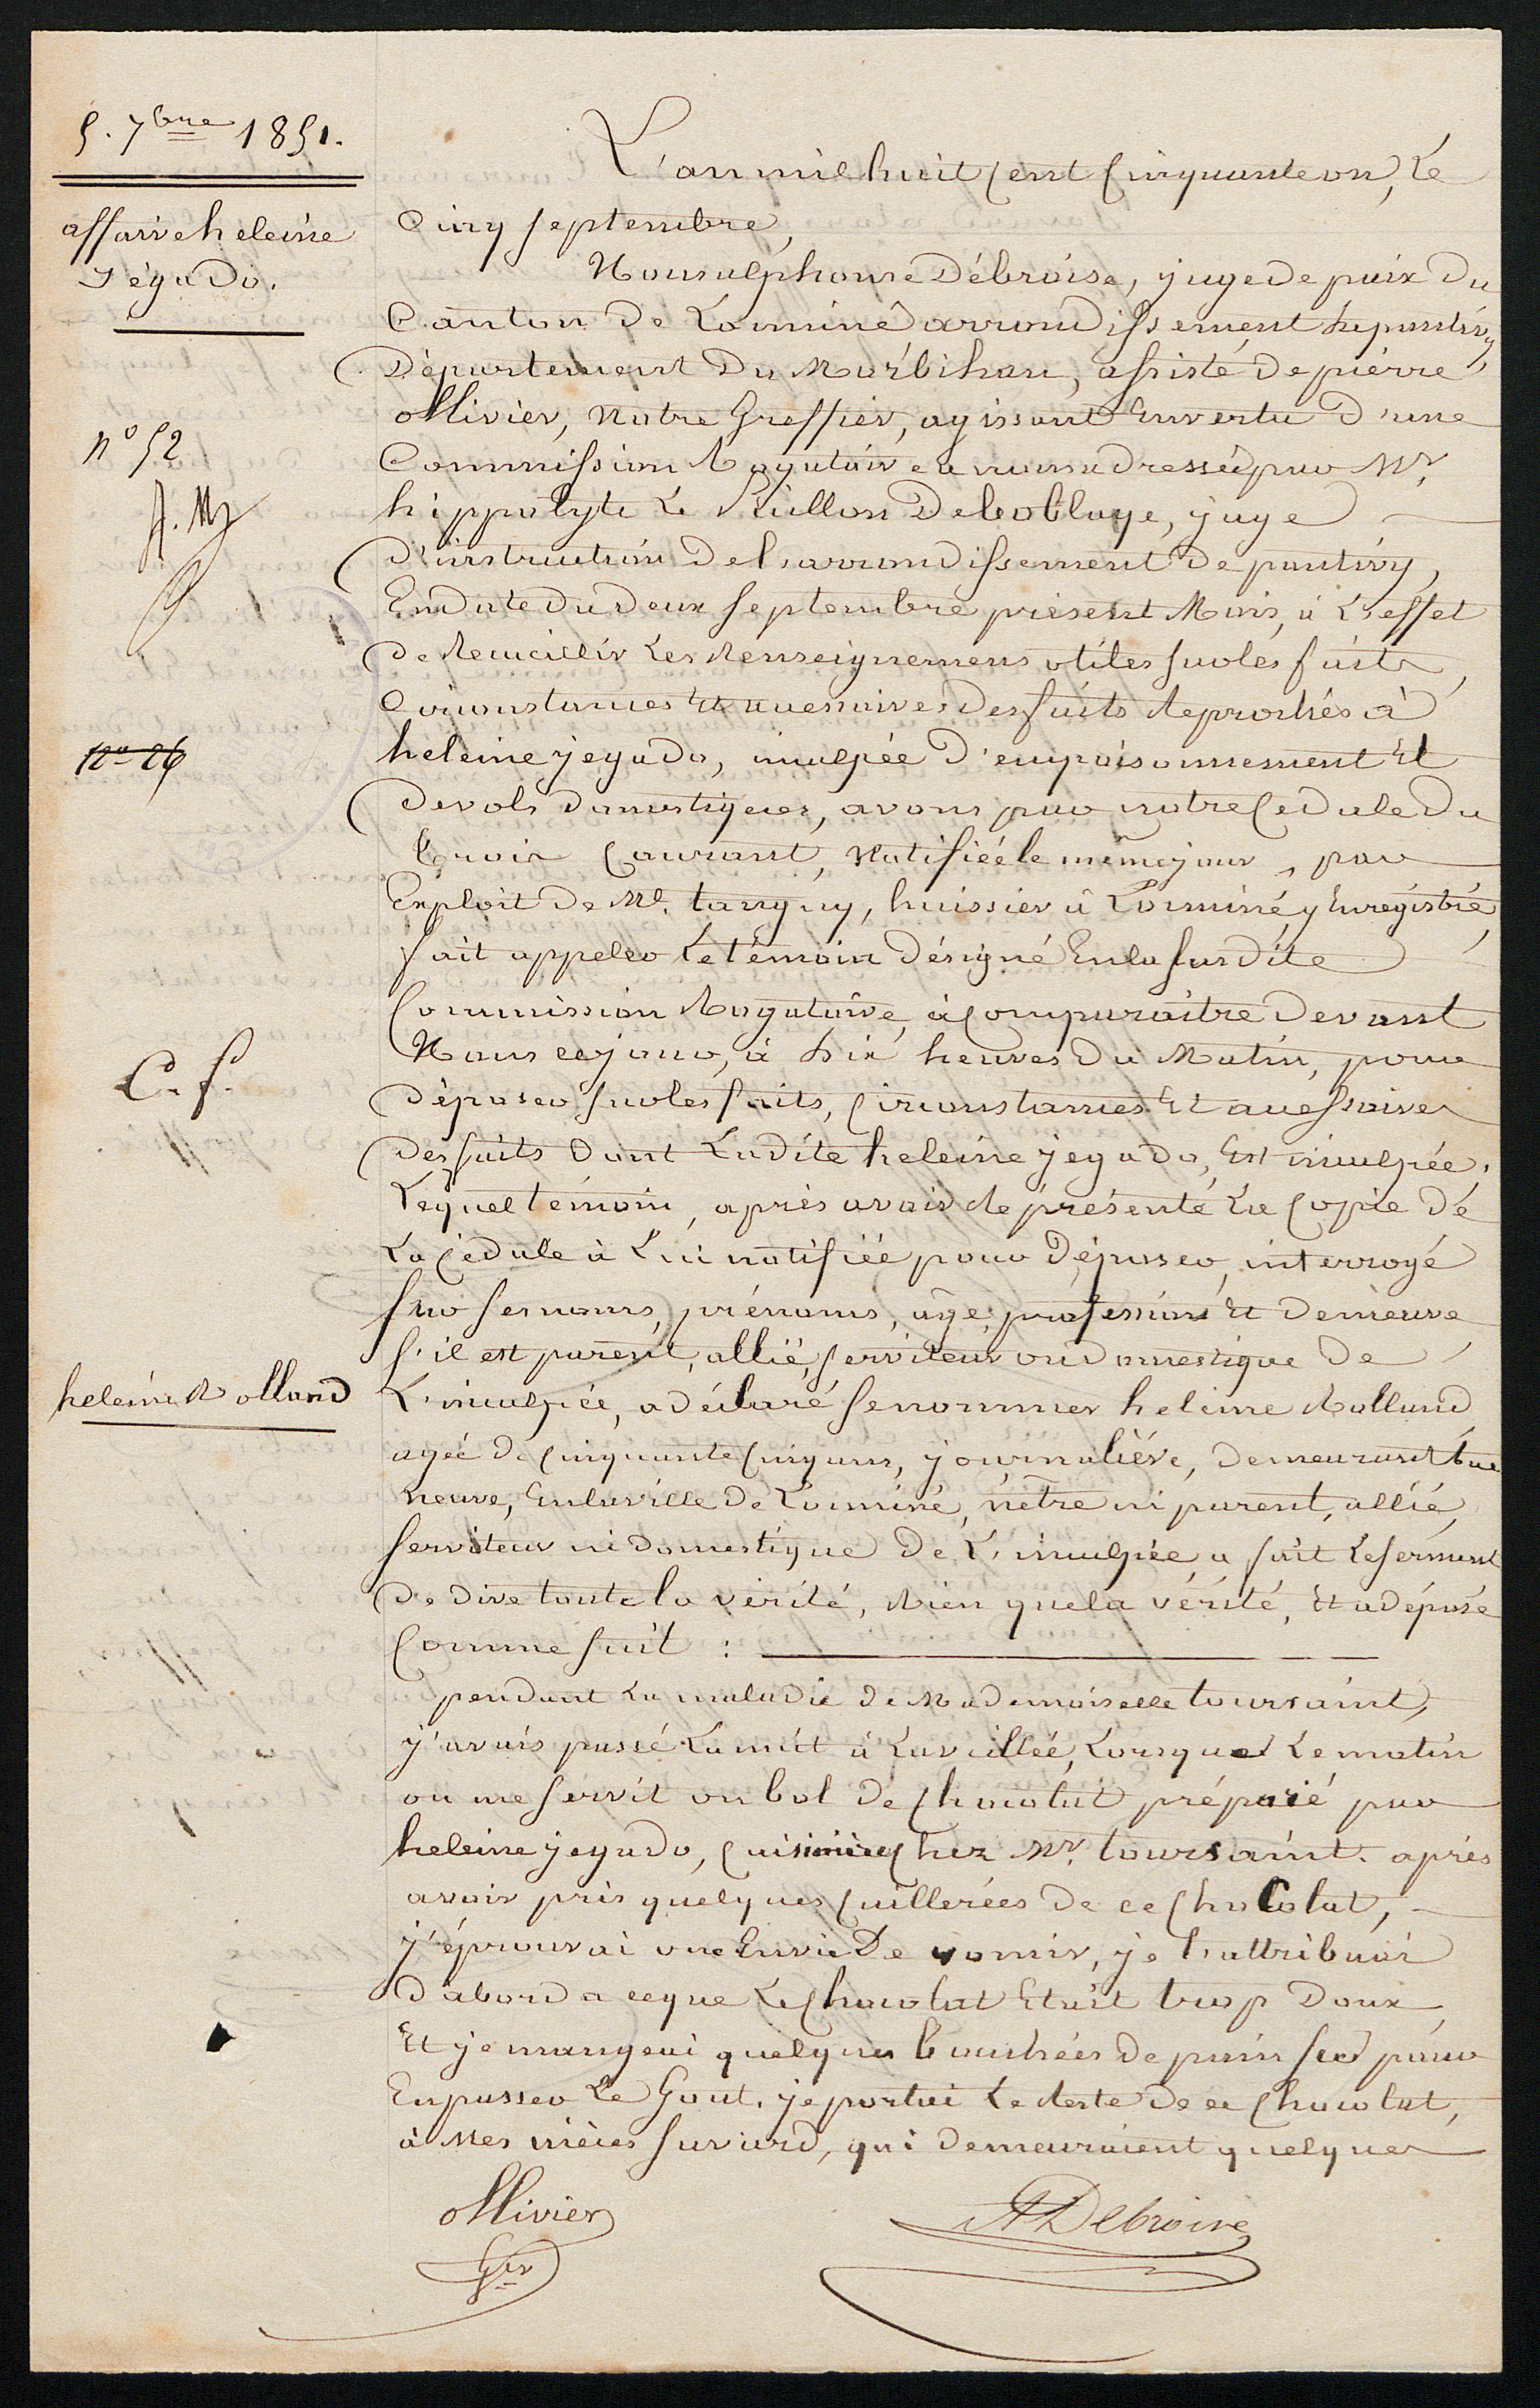 5. 7bre 1851.
affaire heleine
Jégado.
n° 52
n° 26
C. f.
heleine Rolland
L'an mil huit cent cinquante un, Le
Cinq septembre,
Nous alphonse Débroise, juge de paix du
Canton de Locminé arrondissement de pontivy,
Département du Morbihan, assisté de pierre
ollivier, notre Greffier, agissant En vertu d'une
Commission Rogatoire a nous adressée par Mr.
hippolyte Le juge
d'instruction de l'arrondissement de pontivy,
En date du deux septembre présent Mois, à L'effet
de Recueillir Les Renseignemens utiles sur les faits,
Circonstances Et accessoires des faits Reprochés à
heleine jegado, inculpée d'empoisonnement Et
de vols domestiques, avons par notre Cedule du
trois Courant, Notifiée le même jour, par
Exploit de Me. tanguy, huissier à Locminé, y Enregistré,
fait appeler Le témoin désigné En la susdite
Commission Rogatoire, à Comparaître devant
Nous ce jour, à dix heures du Matin, pour
déposer sur les faits, Circonstances Et accessoires
des faits dont Ladite heleine jegado, Est inculpée.
Lequel témoin, après avoir Représenté La Copie de
La Cédule à Lui notifiée pour déposer, interrogé
sur ses noms, prénoms, age, profession Et demeure
s'il est parent, allié, serviteur ou domestique de
L'inculpée, a déclaré se nommer heleine Rolland,
agée de Cinquante Cinq ans, journalière, demeurant rue
neuve, En la ville de Locminé, n'être ni parent, allié,
serviteur ni domestique de L'inculpée, a fait Le serment
de dire toute la vérité, Rien que la vérité, Et a déposé
Comme suit :
pendant La maladie de Mademoiselle toursaint,
j'avais passé La nuit à La veillée, Lorsque Le matin
on me servit un bol de Chocolat préparé par
heleine jegado, Cuisinière Chez Mr. toursaint. après
avoir pris quelques Cuillerées de ce Chocolat,
j'éprouvai une Envie de vomir, je l'attribuai
d'abord a ce que Le Chocolat Etait trop doux
Et je mangeai quelques bouchées de pain sec pour
En passer Le Gout. je portai Le Reste de ce Chocolat,
à Mes nièces suviard, qui demeuraient quelques
ollivier
Gier
A Debroise